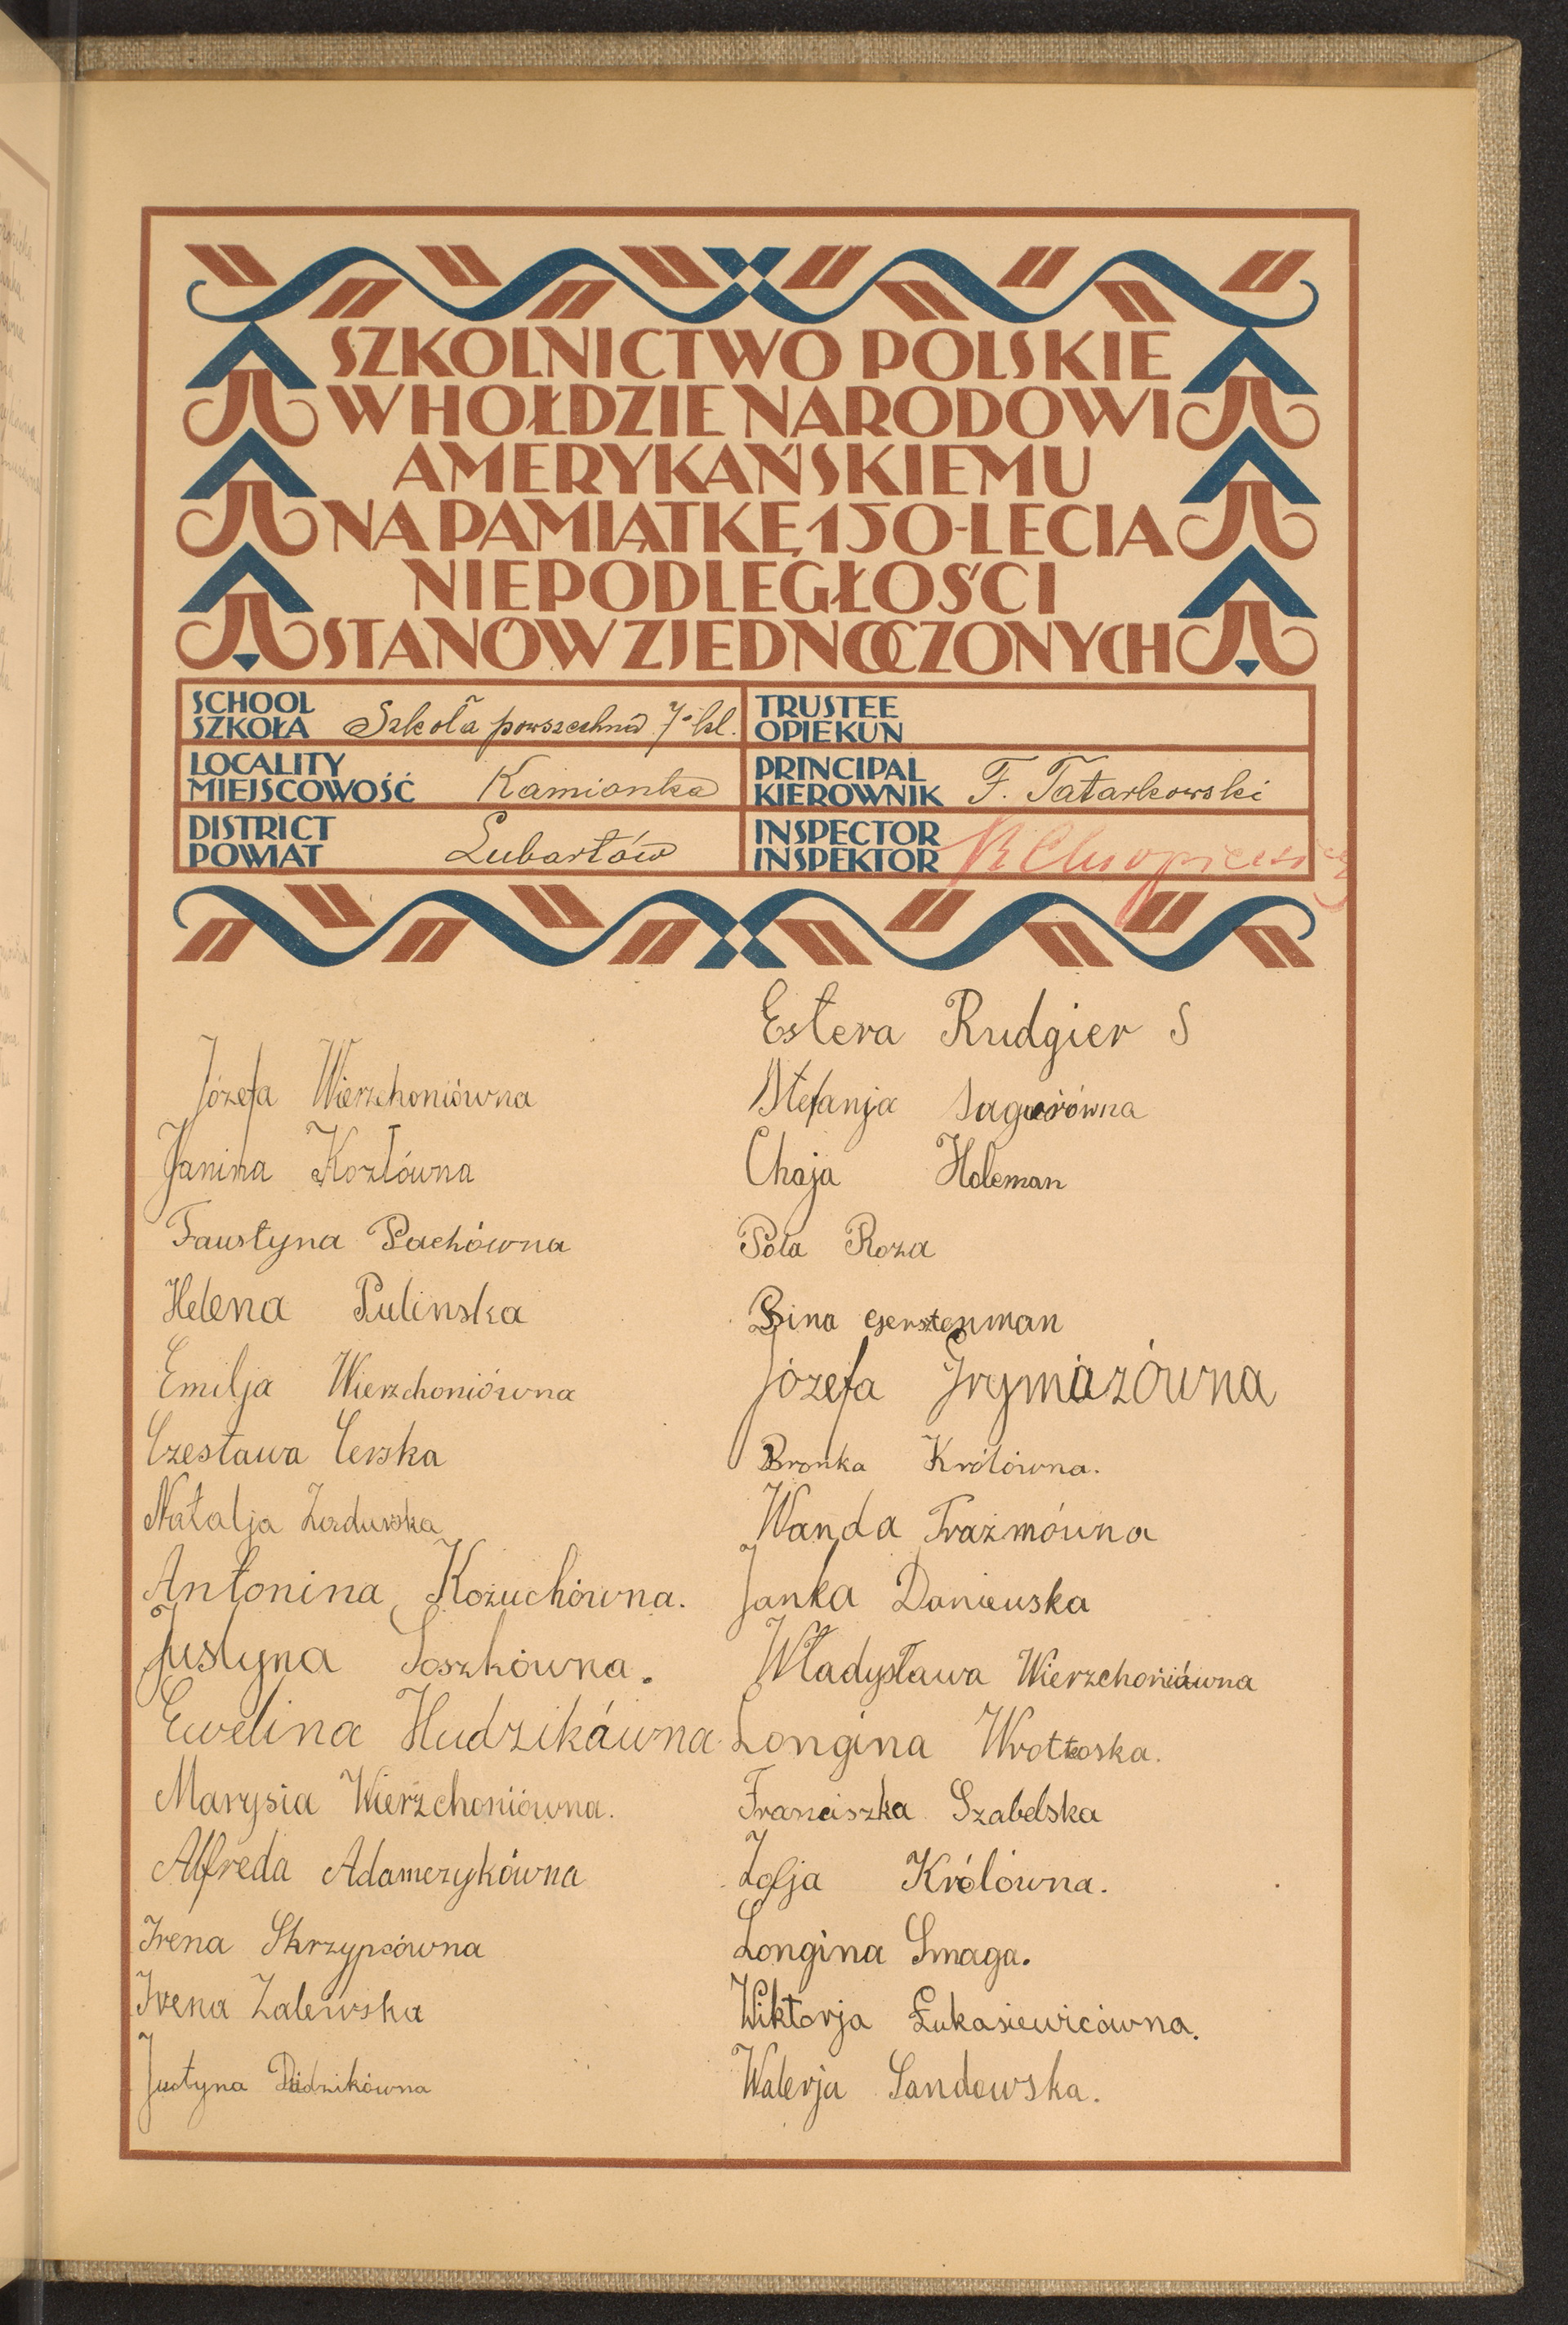 SZKOLNICTWO POLSKIE
W HOŁDZIE NARODOWI
AMERYKAŃSKIEMU
NA PAMIĄTKĘ 150-LECIA
NIEPODLEGŁOŚCI
STANÓW ZJEDNOCZONYCH
SCHOOL
SZKOŁA Szkoła powszechna 7-kl.
LOCALITY
MIEJSCOWOŚĆ Kamionka
DISTRICT
POWIAT Lubartów
TRUSTEE
OPIEKUN
PRINCIPAL
KIEROWNIK F. Tatarkowski
INSPECTOR
INSPEKTOR
Józefa Wierzchoniówna
Janina Kozłówna
Faustyna Pachówna
Helena Pulinska
Emilja Wierzchoniówna
Czesława Cerska
Natalja
Antonina Kożuchówna.
Justyna Soszkówna.
Ewelina Hudzikówna
Marysia Wierzchoniówna.
Alfreda Adamczykówna
Irena Skrzypcówna
Irena Zalewska
Justyna Dudzikówna
Estera Rudgier S
Stefanja
Chaja Holeman
Pola Roza
Bina Gersztenman
Józefa Grymuzówna
Bronka Królówna.
Wanda Trażmówna
Janka Daniewska
Władysława Wierzchoniówna
Longina Wrotkoska.
Franciszka Szabelska
Zofja Królówna.
Longina Smaga.
Wiktorja Łukasiewicówna.
Walerja Sandowska.